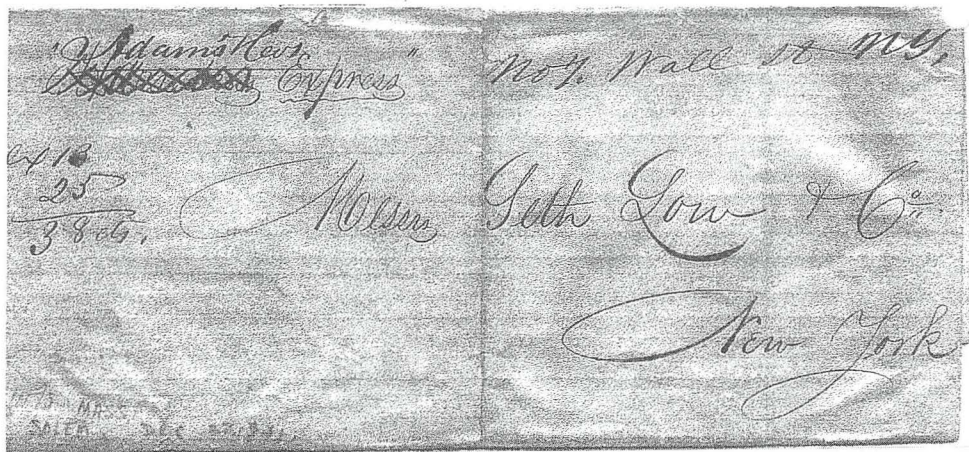 "Adams News. "
Express
No 7. Wall St NY,
ex 13
25
38 cts.
Messrs Seth Low & Co.
New York
MASS
SALEM DEC